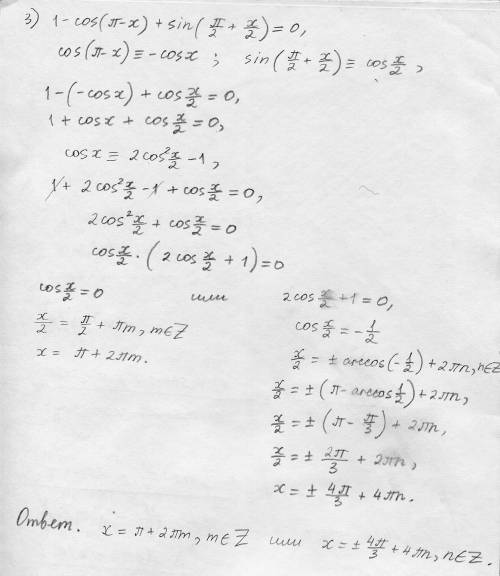 3) 1-cos(π-x)+sin(π/2+x/2)=0,
cos(π-x)≡-cosx ; sin(π/2+x/2)≡cos x/2,
1-(-cosx)+cos x/2=0,
1+cosx+cos x/2=0,
cosx≡2cos² x/2-1,
1+2cos² x/2-1+cos x/2=0,
2cos² x/2+cos x/2=0
cos x/2·(2cos x/2+1)=0
cos x/2=0 или 2cos x/2+1=0,
x/2=π/2+πm, m∈Z
x=π+2πm.
cos x/2=-1/2
x/2=±arccos(-1/2)+2πn, n∈Z
x/2=±(π-arccos 1/2)+2πn,
x/2=±(π-π/3)+2πn,
x/2=±2π/3+2πn,
x=±4π/3+4πn.
Ответ. x=π+2πm, m∈Z или x=±4π/3+4πn, n∈Z.